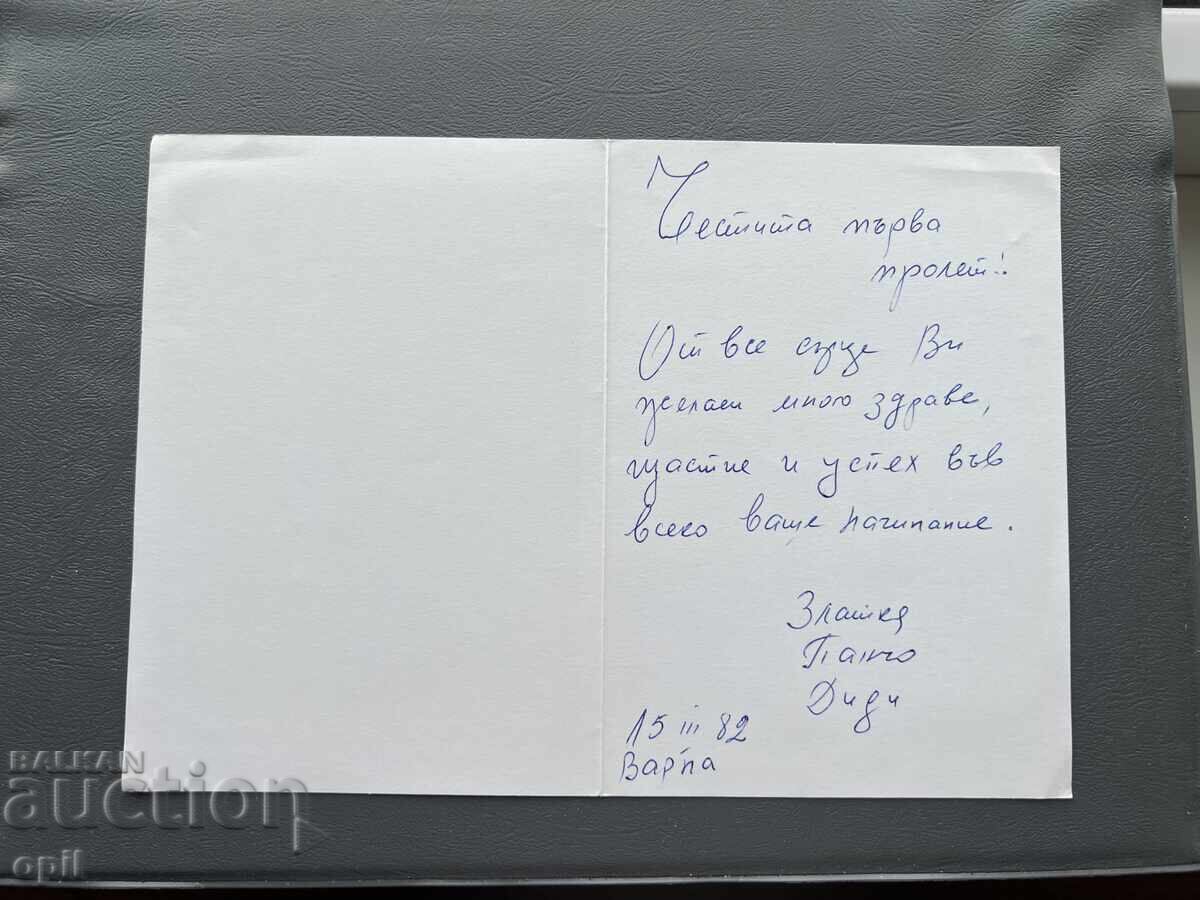 Честита първа
пролет!
От все сърце Ви
желаем много здраве,
щастие и успех във
всяко ваше начинание.
Златка
Панчо
Диди
15 III 82
Варна
BALKAN
auction
opil